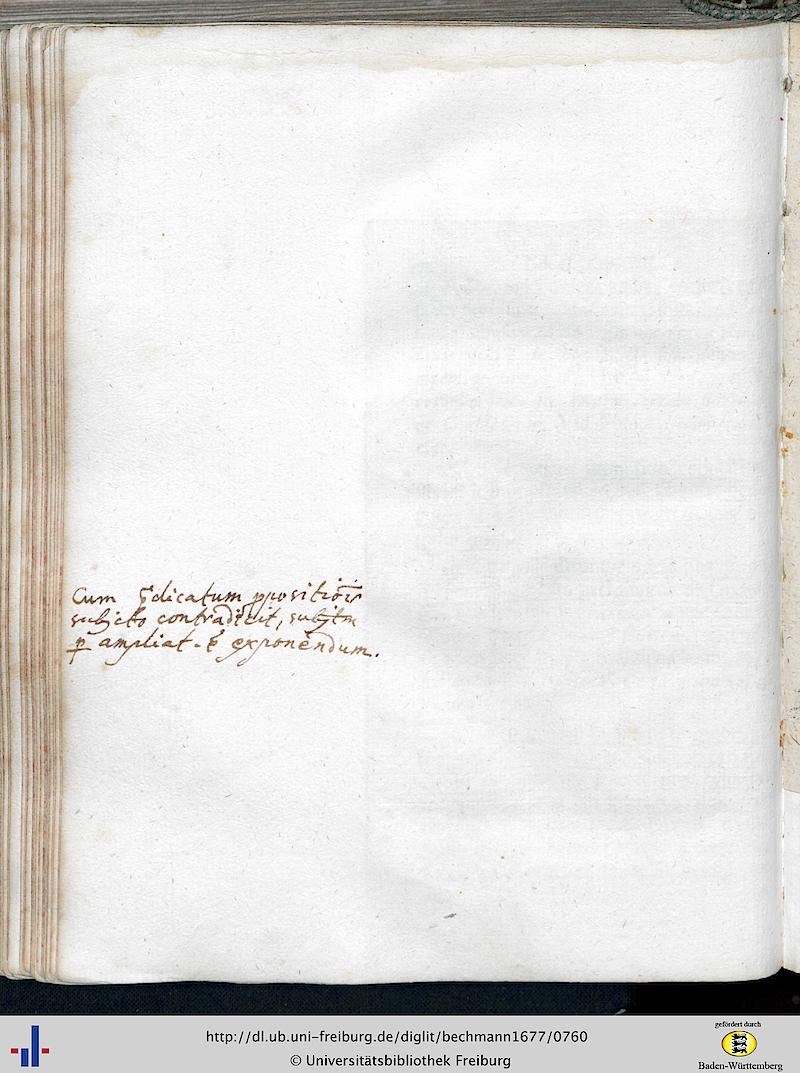 Cum p̃dicatum ppositiōis
subjcto contradicit, subjtm
p ampliat. ē exponendum.
http://dl.ub.uni-freiburg.de/diglit/bechmann1677/0760
© Universitätsbibliothek Freiburg
gefördert durch
Baden-Württemberg